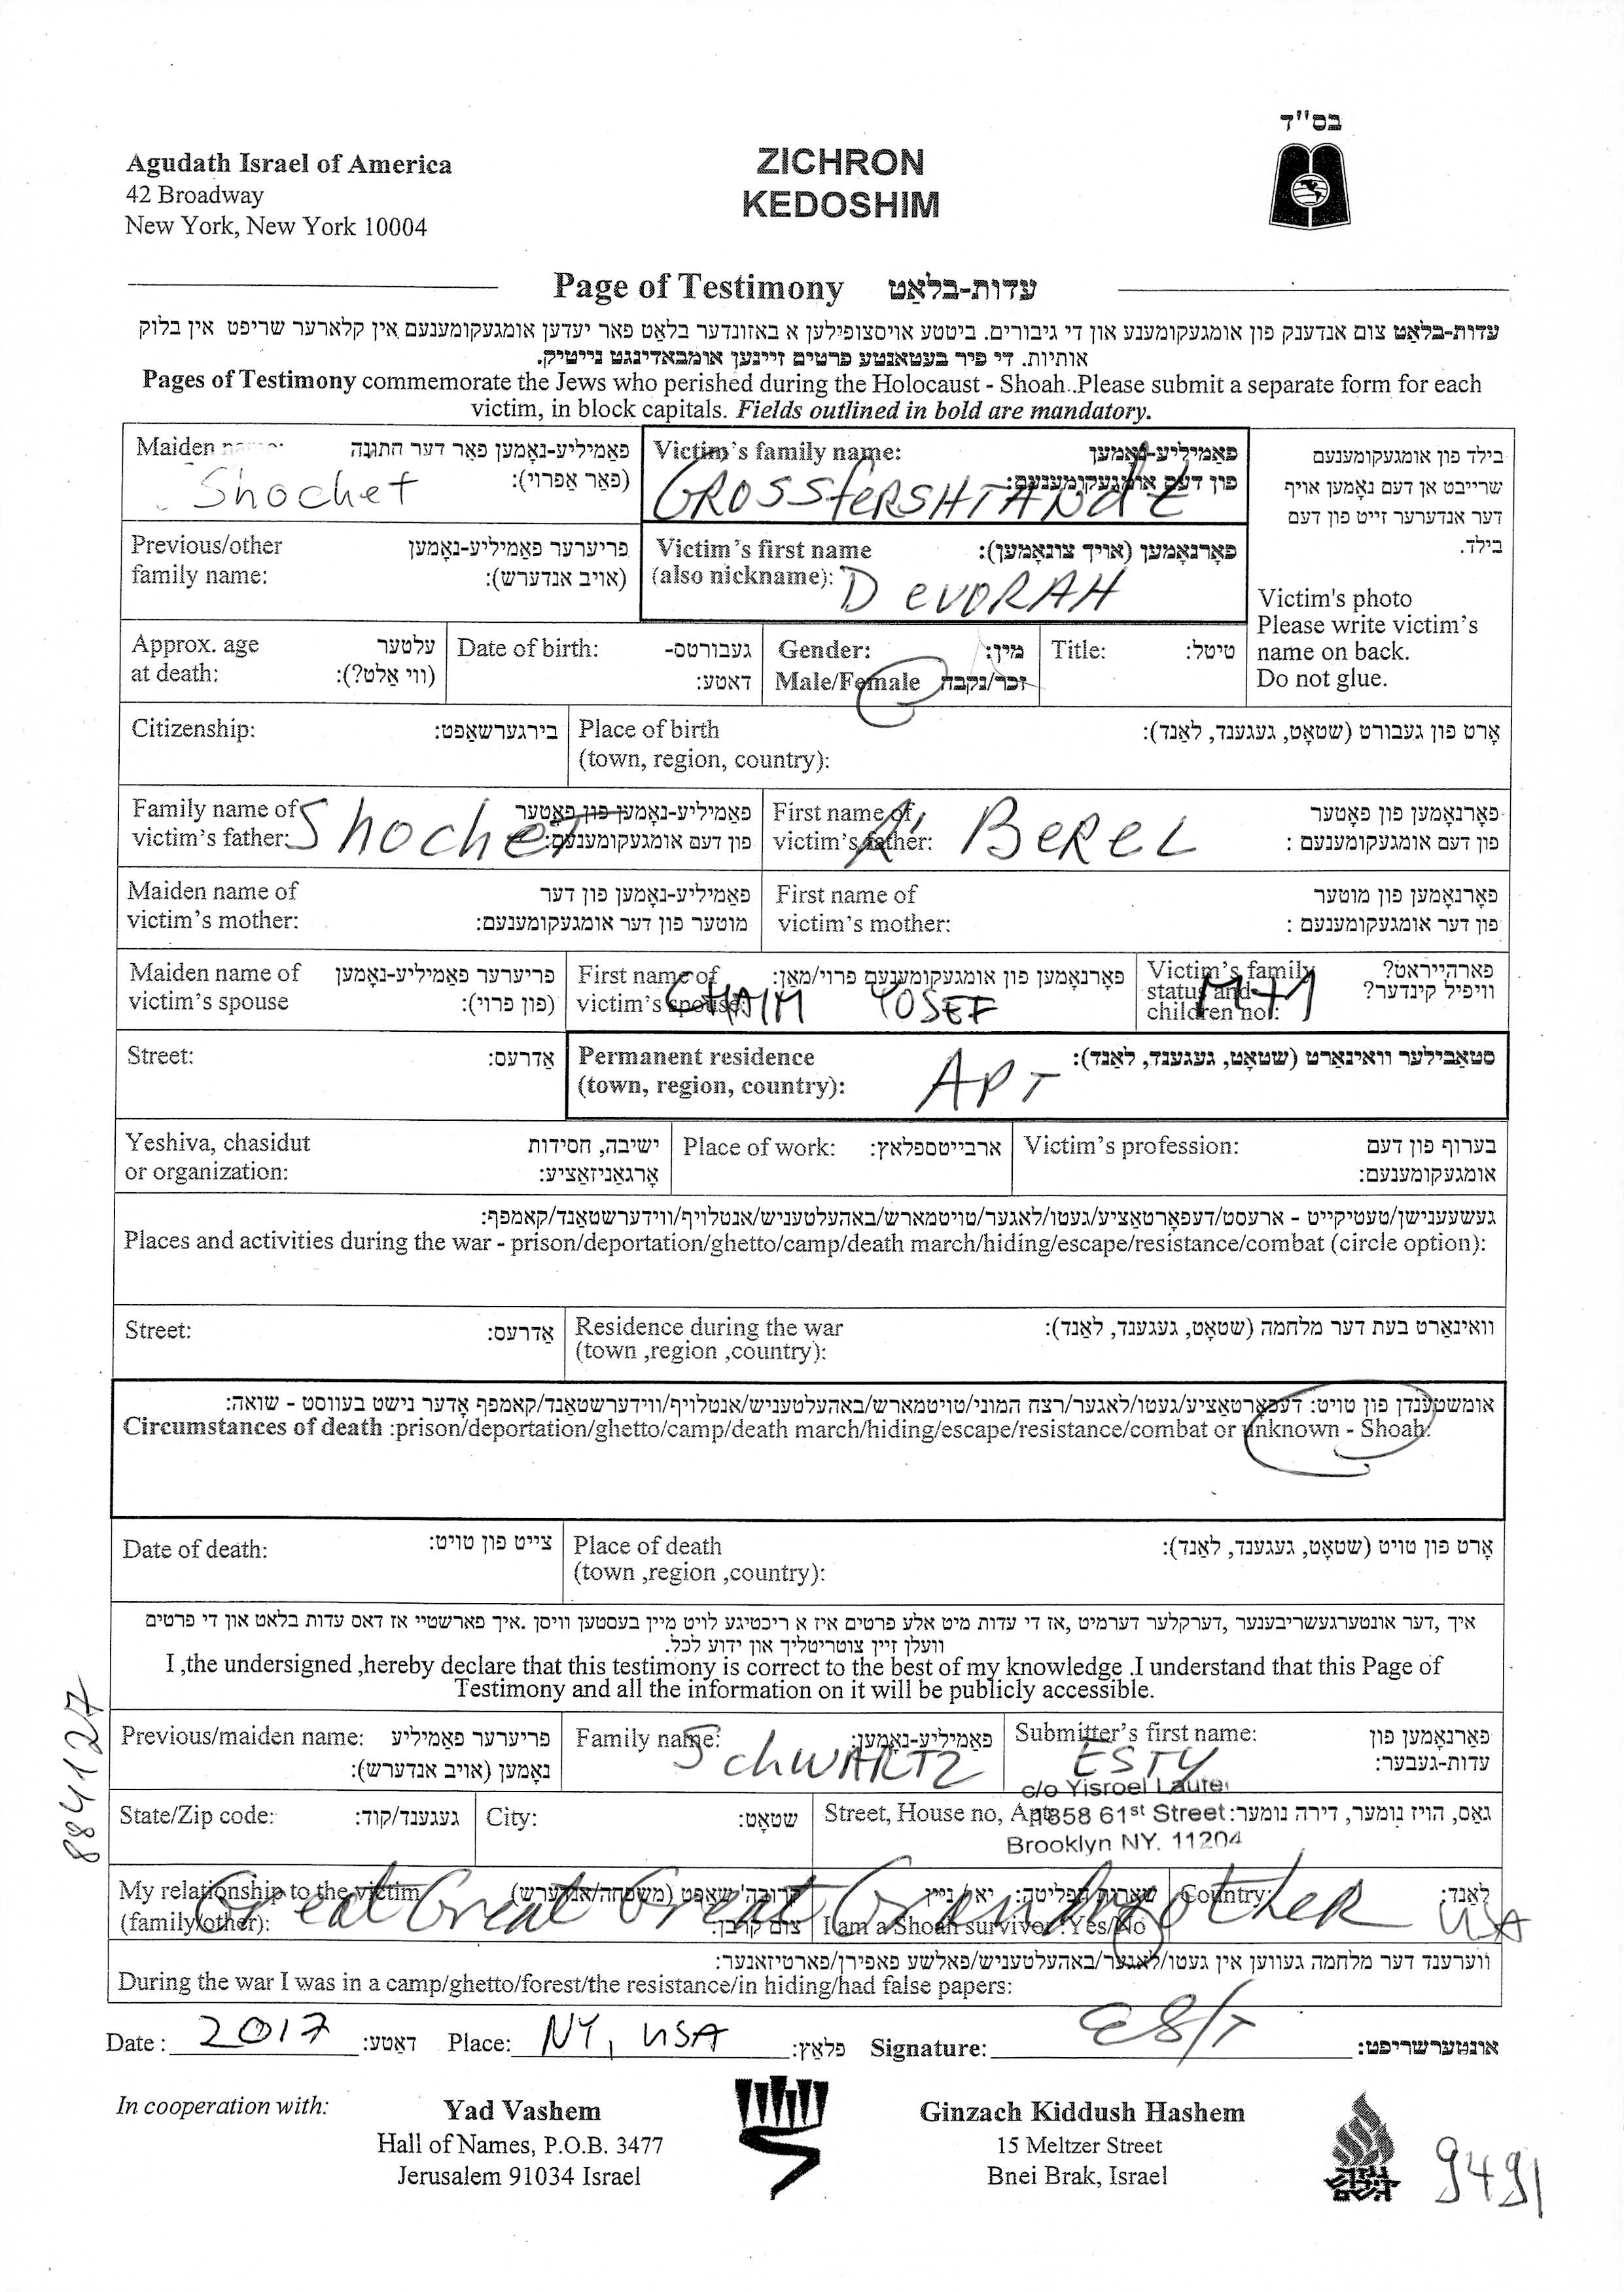 בס"ד
Agudath Israel of America
42 Broadway
New York, New York 10004
ZICHRON
KEDOSHIM
Page of Testimony עדות-בלאַט
עדות-בלאַט צום אנדענק פון אומגעקומענע און די גיבורים. ביטטע אויסצופילען א באזונדער בלאַט פאר יעדען אומגעקומענעם אין קלארער שריפט אין בלוק
אותיות. די פיר בעטאנטע פרטים זיינען אומבאדינגט נייטיק.
Pages of Testimony commemorate the Jews who perished during the Holocaust - Shoah..Please submit a separate form for each
victim, in block capitals. Fields outlined in bold are mandatory.
Maiden name: פאַמיליע-נאָמען פאַר דער חתונה
(פאַר אַפרוי):
Shochet
Victim's family name: פאַמיליע-נאָמען
פון דעם אומגעקומענעם:
GROSSfERSHTANdE
בילד פון אומגעקומענעם
שרייבט אן דעם נאָמען אויף
דער אנדערער זייט פון דעם
בילד.
Victim's photo
Please write victim's
name on back.
Do not glue.
Previous/other פריערער פאַמיליע-נאָמען
family name: (אויב אנדערש):
Victim's first name פאָרנאָמען (אויך צונאָמען):
(also nickname): DEVORAH
Approx. age עלטער
at death: (ווי אַלט?):
Date of birth: געבורטס-
דאטע:
Gender: מין:
Male/Female זכר/נקבה
Title: טיטל:
Citizenship: בירגערשאַפט:
Place of birth אָרט פון געבורט (שטאָט, געגענד, לאַנד):
(town, region, country):
Family name of פאַמיליע-נאָמען פון פאָטער
victim's father: פון דעם אומגעקומענעם:
Shochet
First name of פאָרנאָמען פון פאָטער
victim's father: פון דעם אומגעקומענעם :
R' BEREL
Maiden name of פאַמיליע-נאָמען פון דער
victim's mother: מוטער פון דער אומגעקומענעם:
First name of פאָרנאָמען פון מוטער
victim's mother: פון דער אומגעקומענעם :
Maiden name of פריערער פאַמיליע-נאָמען
victim's spouse (פון פרוי):
First name of פאָרנאָמען פון אומגעקומענעם פרוי/מאַן:
victim's spouse: CHAIM YOSEF
Victim's family פארהייראט?
status and וויפיל קינדער?
children no.: M+1
Street: אַדרעס:
Permanent residence סטאַבילער וואוינאָרט (שטאָט, געגענד, לאַנד):
(town, region, country): APT
Yeshiva, chasidut ישיבה, חסידות
or organization: אָרגאַניזאַציע:
Place of work: ארבייטספלאץ:
Victim's profession: בערוף פון דעם
אומגעקומענעם:
געשעענישן/טעטיקייט - ארעסט/דעפּאָרטאַציע/געטו/לאגער/טויטמארש/באהעלטעניש/אנטלויף/ווידערשטאנד/קאמפף:
Places and activities during the war - prison/deportation/ghetto/camp/death march/hiding/escape/resistance/combat (circle option):
Street: אַדרעס:
Residence during the war וואוינאָרט בעת דער מלחמה (שטאָט, געגענד, לאַנד):
(town ,region ,country):
אומשטענדן פון טויט: דעפּאָרטאַציע/געטו/לאגער/רצח המוני/טויטמארש/באהעלטעניש/אנטלויף/ווידערשטאַנד/קאמפף אָדער נישט בעווסט - שואה:
Circumstances of death :prison/deportation/ghetto/camp/death march/hiding/escape/resistance/combat or unknown - Shoah:
Date of death: צייט פון טויט:
Place of death אָרט פון טויט (שטאָט, געגענד, לאַנד):
(town ,region ,country):
איך ,דער אונטערגעשריבענער ,דערקלער דערמיט ,אז די עדות מיט אלע פרטים איז א ריכטיגע לויט מיין בעסטען וויסן .איך פארשטיי אז דאס עדות בלאט און די פרטים
וועלן זיין צוטריטליך און ידוע לכל.
I ,the undersigned ,hereby declare that this testimony is correct to the best of my knowledge .I understand that this Page of
Testimony and all the information on it will be publicly accessible.
884127
Previous/maiden name: פריערער פאַמיליע
נאָמען (אויב אנדערש):
Family name: פאַמיליע-נאָמען:
SchWARTZ
Submitter's first name: פאָרנאָמען פון
עדות-געבער:
ESTY
State/Zip code: געגענד/קוד:
City: שטאָט:
Street, House no, Apt: גאַס, הויז נומער, דירה נומער:
c/o Yisroel Laufer
1858 61st Street
Brooklyn NY. 11204
My relationship to the victim קרובה'שאַפט (משפחה/אנדערש)
(family/other): צום קרבן:
Great Great Great Grandmother
שארית הפליטה: יאָ/ ניין
I am a Shoah survivor: Yes/No
Country: לאַנד:
USA
ווערענד דער מלחמה געווען אין געטו/לאגער/באהעלטעניש/פאלשע פאפירן/פארטיזאנער:
During the war I was in a camp/ghetto/forest/the resistance/in hiding/had false papers:
Date : 2017 דאטע: Place: NY, USA פלאץ: Signature: EST אונטערשריפט:
In cooperation with:
Yad Vashem
Hall of Names, P.O.B. 3477
Jerusalem 91034 Israel
Ginzach Kiddush Hashem
15 Meltzer Street
Bnei Brak, Israel
9491